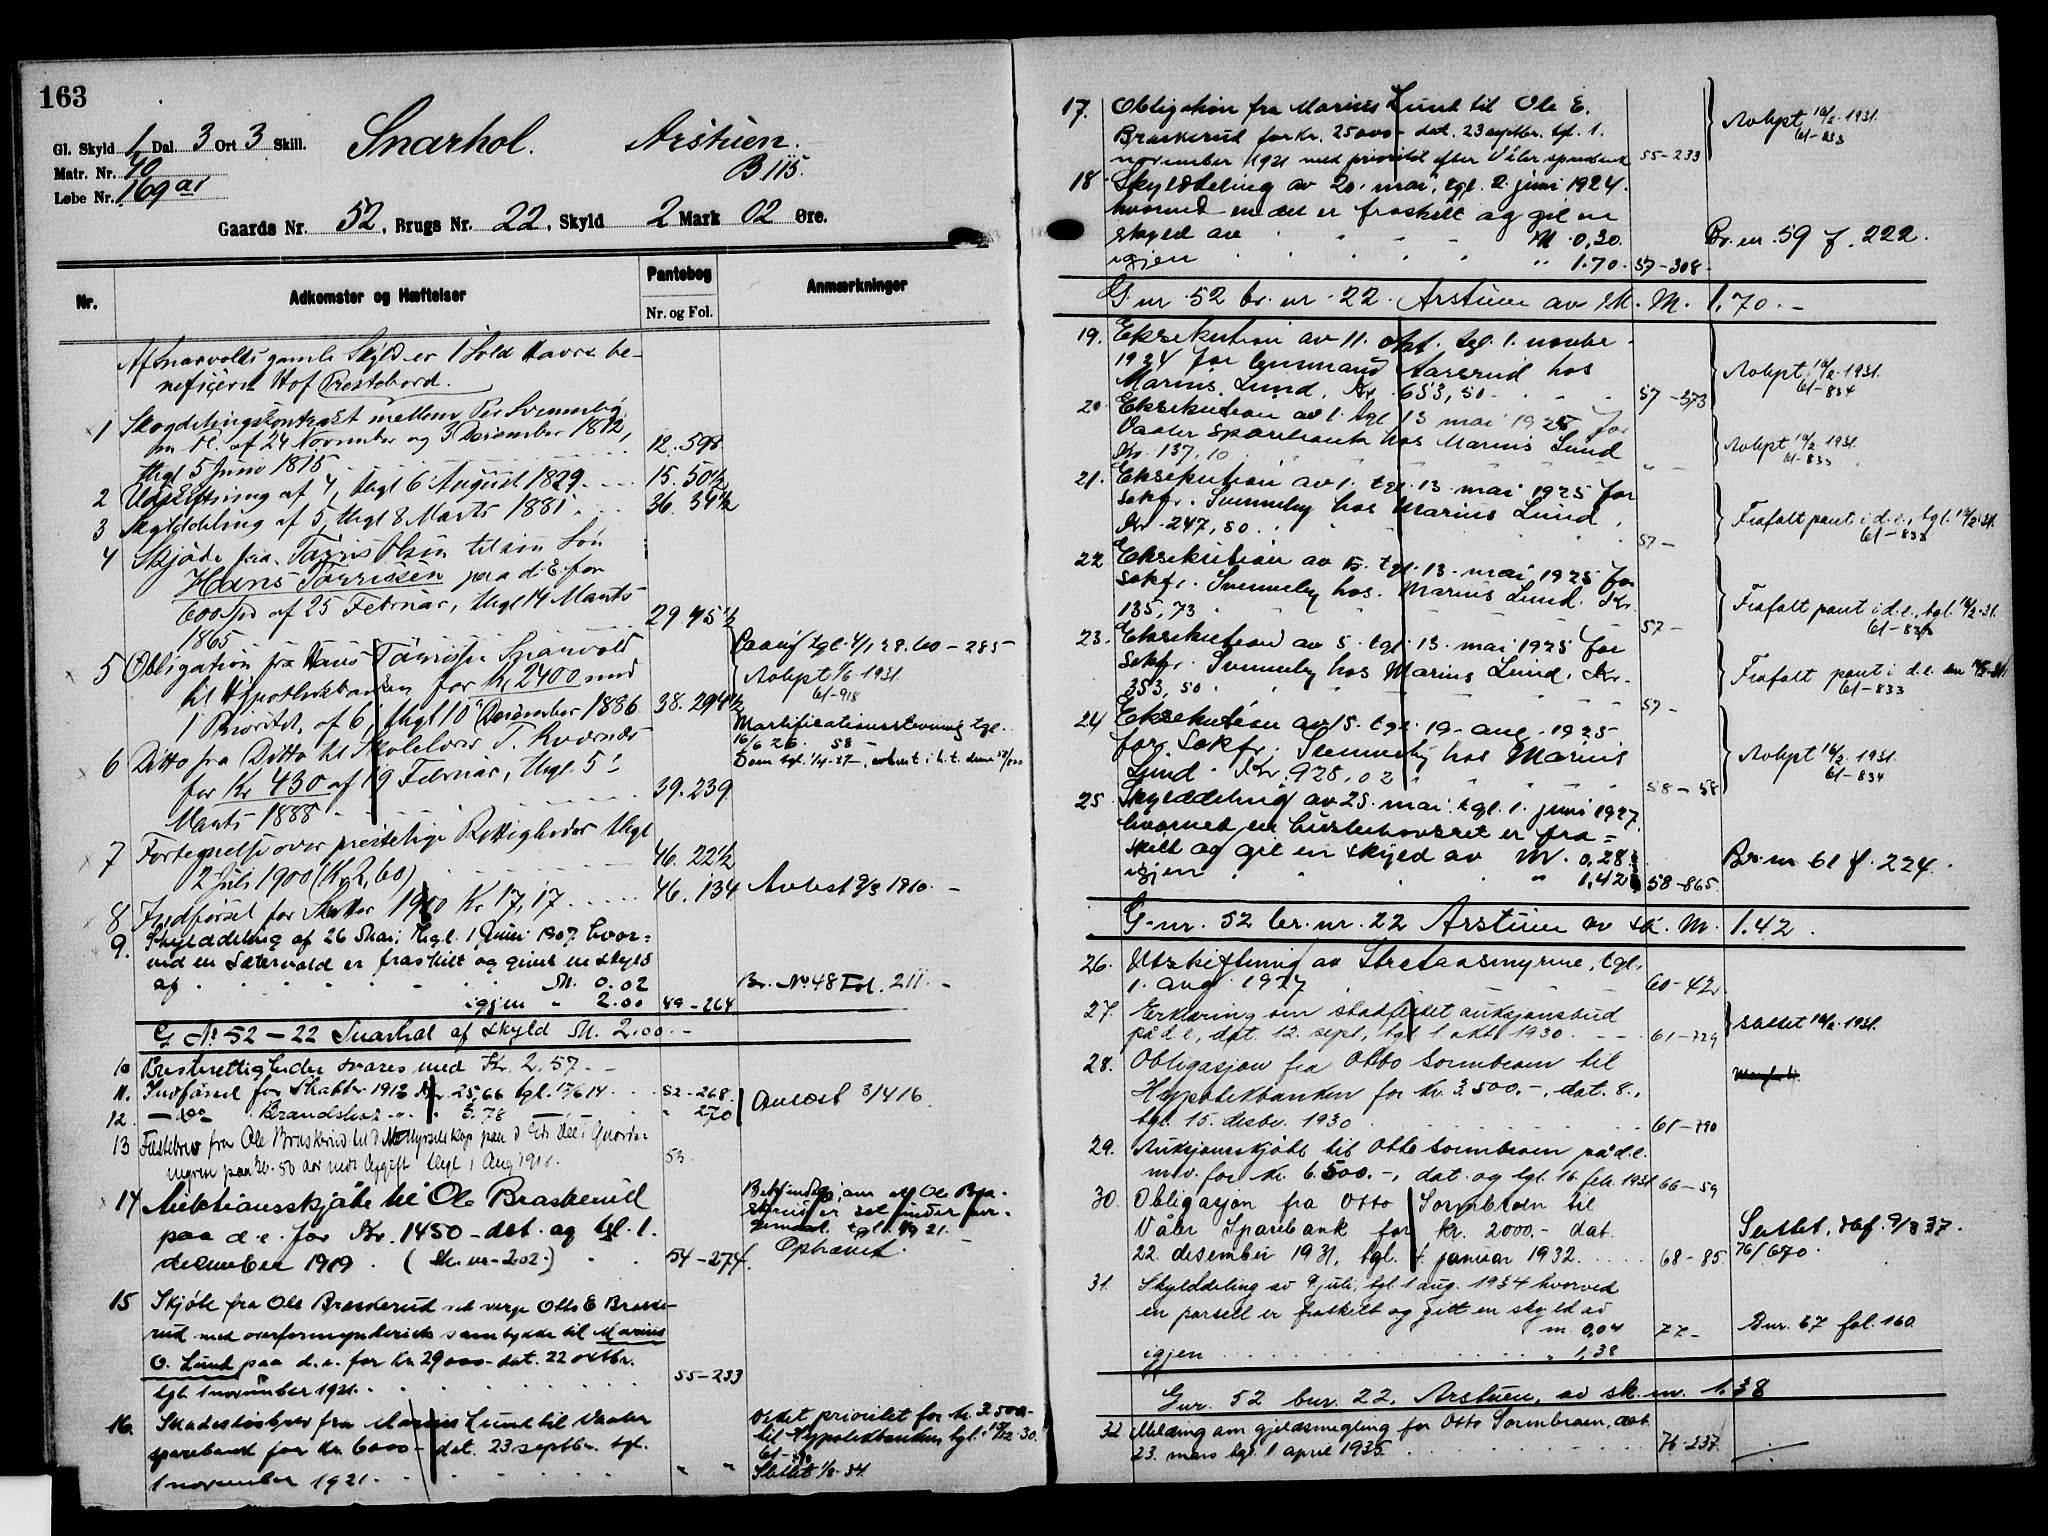 163
Gl. Skyld 1 Dal. 3 Ort 3 Skill.
Snarhol. Arstuen.
Matr. Nr. 40
B 115.
Løbe Nr. 169 ar
Gaards Nr. 52, Brugs Nr. 22, Skyld 2 Mark 02 Øre.
Nr. Adkomster og Hæftelser Pantebog Anmærkninger
Nr. og Fol.
Af Snarvolds gamle Skyld er 1 Hud Havre be-
neficeret Hof Prestebord.
1 Skogdelingskontrakt mellem Per Svenneby
m. Fl. af 24 November og 3 December 1812,
thgl 5 Juni 1815 12. 595
2 Udskiftning af 4, thgl 6 August 1829 15. 50½
3 Skylddeling af 5, thgl 8 Marts 1881 36. 34½
4 Skjøde fra Tørris Olsen til sin Søn
Hans Tørrissen paa d. E. for
600 Spd af 25 Februar, thgl 14 Marts
1865 29. 45½
5 Obligation fra Hans Tørrissen Snarvold
til Hypothekbanken for Kr. 2400 med
1 Prioritet, af 6, thgl 10 December 1886 38. 294½
Paategn tgl. 4/1 28. 60-285-
Avlyst 1/6 1931.
61-918
6 Ditto fra Ditto til Skolelærer T. Kværnæs
for Kr 430 af 19 Februar, thgl. 5
Marts 1888 39. 239
Mortifikationsstevning tgl.
16/6 26. 58-
7 Fortegnelse over prestelige Rettigheder thgl
2 Juli 1900 (Kr 2,60) 46. 22½
8 Indførsel for Skatter 1900 Kr 17,17 46. 134 Avlest 9/3 1910.-
9. Skylddeling af 26 Mai, thgl. 1 Juni 1907 hvor=
ved en Sætervold er fraskilt og givet en skyld
af M. 0.02 Br. No 48 Fol. 211.-
igjen " 2.00 49-264
G No 52-22 Snarhol af skyld M. 2.00.-
10 Presterettigheder svares med Kr. 2.57.-
11. Indførsel for Skatter 1913 Kr. 25,66 tgl. 17/6 14 52-268. Avlæst 3/4 16.
12. -do- Brandskat " " 270
13 Fæstebrev fra Ole Braskerud til
myren paa 50 aar mod Avgift thgl 1 Aug 1918. 53
14 Auktionsskjøte til Ole Braskerud
paa d. e. for Kr. 1450 - dat. og tgl. 1.
december 1919. (Sk. nr-202.) 54-274.
Bekjendtgj. om at Ole Bra-
skerud er sat under ver-
gemaal
Ophævet.
15 Skjøte fra Ole Braskerud ved verge Otto E Braske-
rud med overformynderiets samtykke til Marius
O. Lund paa d. e. for kr. 29000- dat. 22 oktbr.
tgl. 1 november 1921. 55-233
16. Skadesløsbrev fra Marius Lund til Vaaler
sparebank for kr. 6000- dat. 23 septbr. tgl.
1 november 1921. " "
Veket prioritet for kr. 3500.-
til Hypotekbanken, tgl. 15/12-30.
61-790
Slettet 1/8-34.
17. Obligation fra Marius Lund til Ole E.
Braskerud for kr. 25000- dat. 23 septbr. tgl. 1.
november 1921 med prioritet efter Våler sparebank 55-233
Avlyst 16/2-1931.
61-833
18 Skylddeling av 20. mai, tgl. 2. juni 1924.
hvorved en del er fraskilt og git en
skyld av M 0,30. Br. nr. 59 f. 222.
igjen " 1.70. 57-308.
G. nr. 52 br. nr. 22. Arstuen av sk. M. 1.70.-
19. Eksekution av 11. okt. tgl. 1. novbr.
1924 for lensmand Aaserud hos
Marius Lund, Kr. 653,50. 57-573
Avlyst 16/2-1931.
61-834
20. Eksekution av 1. tgl 13 mai 1925 for
Vaaler sparebank hos Marius Lund
Kr. 137,10 " -
Avlyst 16/2 1931.
61-833
21. Eksekution av 1. tgl. 13. mai 1925 for
sakfr. Svenneby hos Marius Lund.
Kr. 247,50. 57-
Frafalt pant i d. e., tgl. 16/2-31.
61-833
22. Eksekution av 5. tgl. 13. mai 1925 for
sakfr. Svenneby hos Marius Lund. Kr.
135,73 57-
Frafalt pant i d. e., tgl 16/2-31.
61-833
23. Eksekution av 5. tgl. 13. mai 1925 for
sakfr. Svenneby hos Marius Lund. Kr.
353,50 57-
Frafalt pant i d. e.
61-833
24 Eksekution av 15. tgl. 19. aug. 1925
for sakfr. Svenneby hos Marius
Lund. Kr. 928,02 58-58
Avlyst 16/2-1931.
61-834
25. Skylddeling av 25. mai tgl. 1. juni 1927.
hvorved en husbehovsret er fra=
skilt og git en skyld av M. 0,28
igjen " 1,42 58-865
Br. nr 61 f. 224.
G-nr. 52 br. nr. 22 Arstuen av sk. M. 1.42.
26. Utskiftning av Stretaasmyrene, tgl.
1. aug 1927 60-42.
27. Erklæring om stadfestet auksjonsbud
på d. e., dat. 12. sept, tgl. 1 okt 1930. 61-729
Slettet 16/2-1931.
28. Obligasjon fra Otto Sormbroen til
Hypotekbanken for kr. 3500.-, dat. 8.,
tgl. 15. desbr. 1930 61-790
29. Auksjonsskjøte til Otto Sormbroen på d. e.
m. v. for kr. 6.500.-, dat. og tgl. 16. feb. 1931 66-59
30. Obligasjon fra Otto Sormbroen til
Våler Sparebank for kr. 2000.- dat.
22. desember 1931, tgl. 4. januar 1932. 68-85.
Slettet, dbf. 9/3 37.
76/670.
31. Skylddeling av 9 juli, tgl. 1 aug. 1934 hvorved
en parsell er fraskilt og gitt en skyld av
m. 0,04 77- Bnr. 67 fol. 160.
igjen " 1,38
Gnr. 52 bnr. 22, Arstuen, av sk. m. 1.38
32. Melding om gjeldsmegling for Otto Sormbroen, dat.
23. mars tgl. 1 april 1935. 76-237.